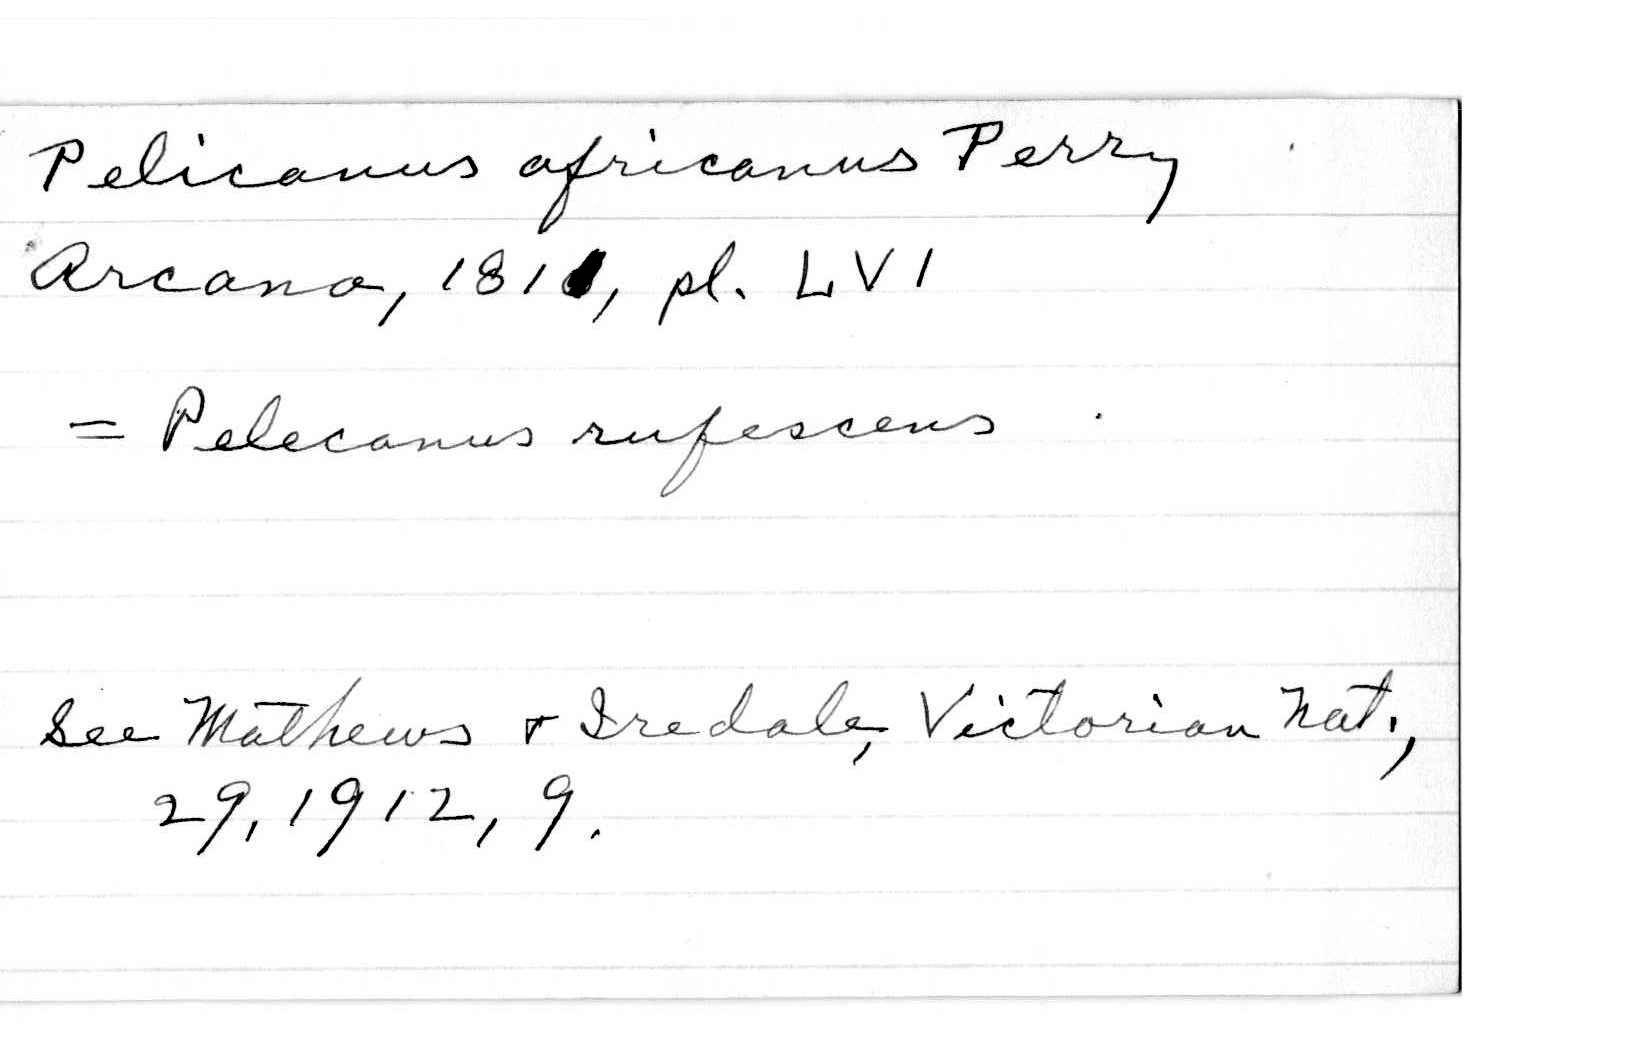 Pelicanus africanus Perry
Arcana, 1811, pl. LVI
= Pelecanus rufescens
See Mathews & Iredale, Victorian Nat.,
29, 1912, 9.